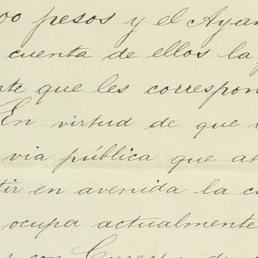 00 pesos y el Ayun
cuenta de ellos la
te que les correspon
En virtud de que
via pública que at
tir en avenida la c
ocupa actualmente